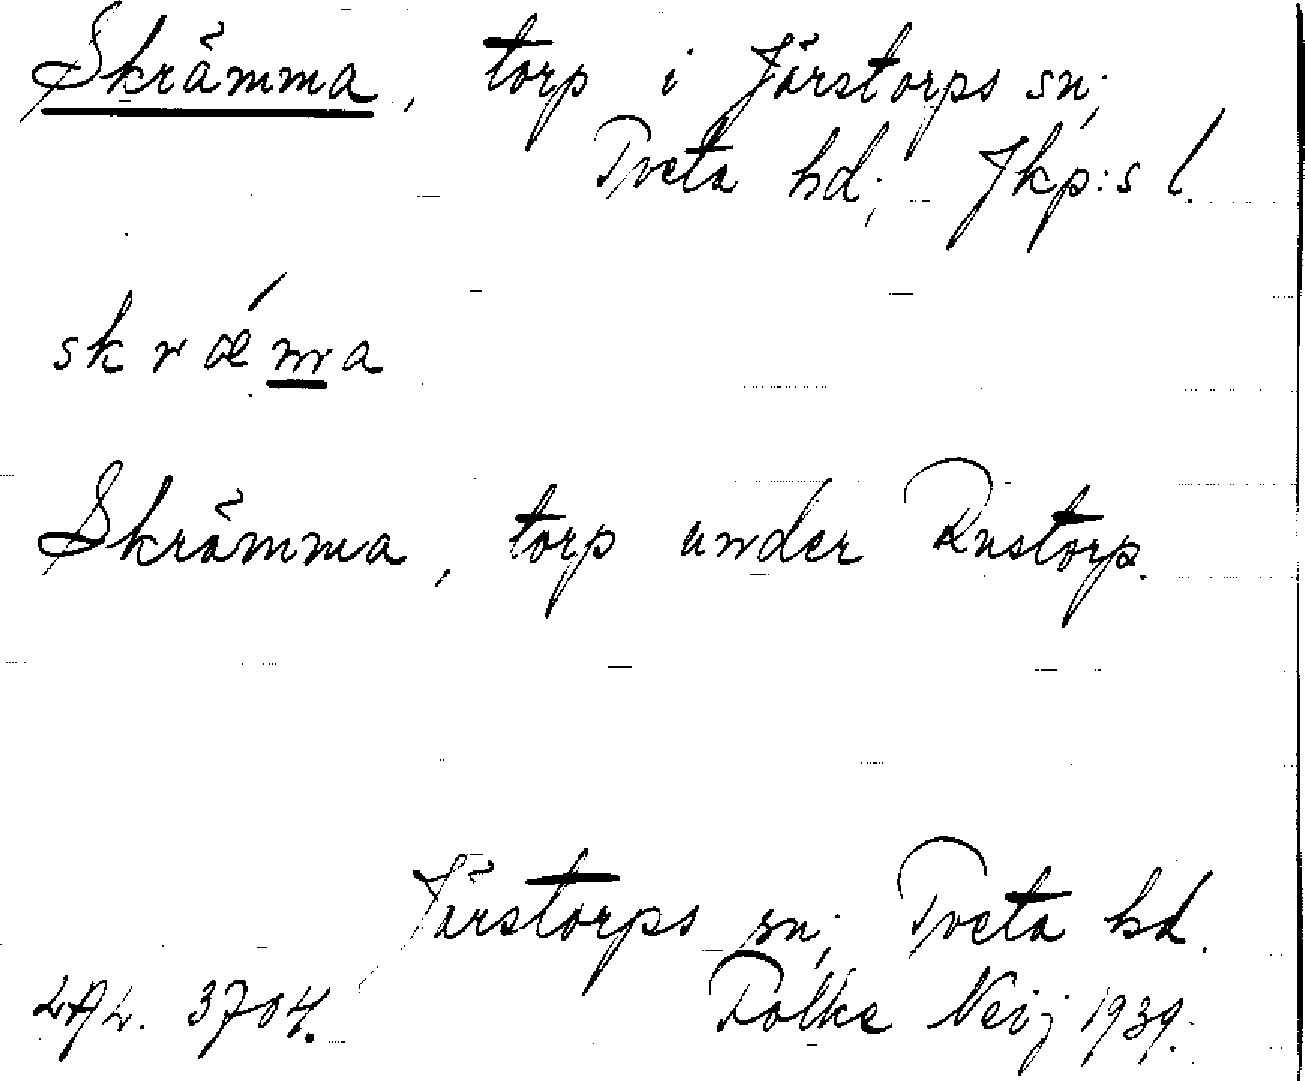 Skrämma, torp i Järstorps sn;
Tveta hd; Jkp:s l.
skrǽma
Skrämma, torp under Rustorp.
Järstorps sn; Tveta hd.
LAL. 3704. Folke Neij 1939.